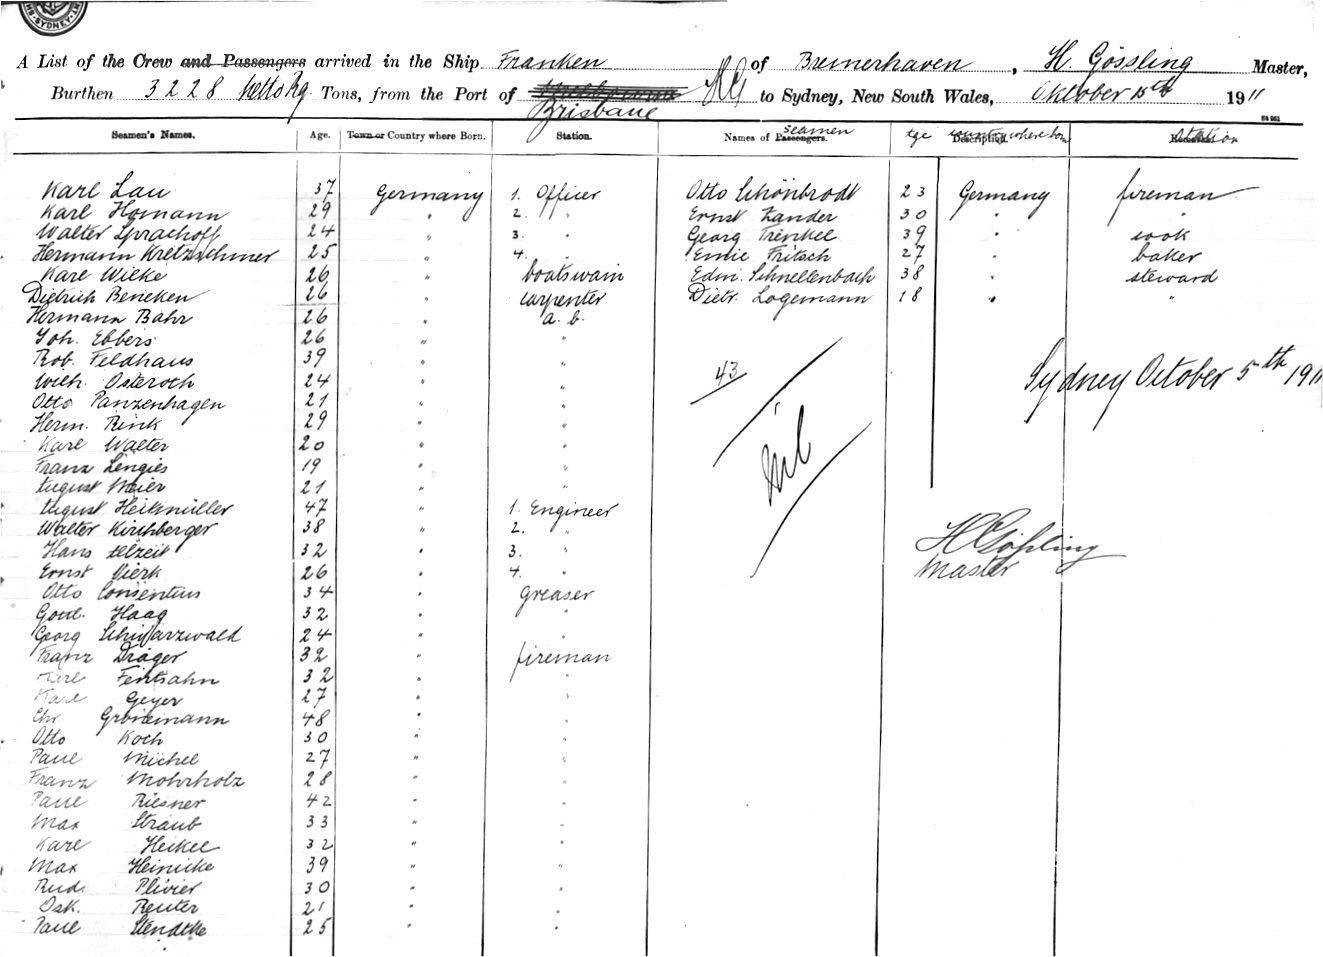 SYDNEY
A List of the Crew and Passengers arrived in the Ship Franken of Bremerhaven, H. Gössling Master,
Burthen 3228 netto Rg. Tons, from the Port of Melbourne Brisbane HG to Sydney, New South Wales, Oktober 5th 1911
Seamen's Names. Age. Town or Country where Born. Station. Names of Passengers. seamen age country where born Description. station
Karl Lau 37 Germany 1. Officer Otto Schönbrodt 23 Germany fireman
Karl Homann 29 " 2. " Ernst Zander 30 " "
Walter Sprachoff 24 " 3. " Georg Trinkel 39 " cook
Hermann Kretzschmer 25 " 4. " Emil Fritsch 27 " baker
Karl Wilke 26 " boatswain Edm. Schnellenbach 38 " steward
Dietrich Beneken 26 " carpenter Dietr. Logemann 18 " "
Hermann Bahr 26 " a. b.
Joh. Ebbers 26 " "
Rob. Feldhaus 39 " " 43
Wilh. Osteroth 24 " " Sydney October 5th 1911
Otto Panzenhagen 21 " "
Herm. Rink 29 " "
Karl Walter 20 " " nil
Franz Lengies 19 " "
August Meier 21 " "
August Heikmüller 47 " 1. Engineer
Walter Kirchberger 38 " 2. "
Hans 32 " 3. " H Gößling
Ernst Vierk 26 " 4. " Master
Otto Consentius 34 " greaser
Gottl. Haag 32 " "
Georg Schwarzwald 24 " "
Franz Dräger 32 " fireman
Karl Fentsahn 32 " "
Karl Geyer 27 " "
Chr 48 " "
Otto Koch 30 " "
Paul Michel 27 " "
Franz Mohrholz 28 " "
Paul Riesner 42 " "
Max Straub 33 " "
Karl Heikel 32 " "
Max Heinicke 39 " "
Rud. Plivier 30 " "
Osk. Reuter 21 " "
Paul Stendtke 25 " "